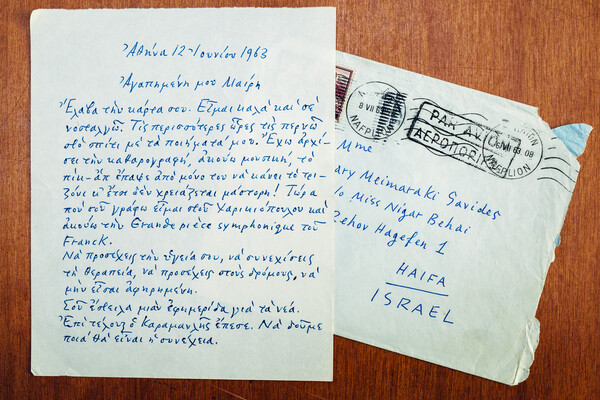 Ἀθήνα 12 Ἰουνίου 1963
Ἀγαπημένη μου Μαίρη
Ἔλαβα τὴν κάρτα σου. Εἶμαι καλὰ καὶ σὲ
νοσταλγῶ. Τὶς περισσότερες ὧρες τὶς περνῶ
στὸ σπίτι μὲ τὰ ποιήματά μου. Ἔχω ἀρχί-
σει τὴν καθαρογραφή, ἀκούω μουσική, τὸ
πικ-ἀπ ἔπαψε ἀπὸ μόνο του νὰ κάνει τὸ τρι-
ζόνι κ' ἔτσι δὲν χρειάζεται μάστορη! Τώρα
ποὺ σοῦ γράφω εἶμαι στοῦ Χαρικιόπουλου καὶ
ἀκούω τὴν Grande pièce symphonique τοῦ
Franck.
Νὰ προσέχεις τὴν ὑγεία σου, νὰ συνεχίσεις
τὴ θεραπεία, νὰ προσέχεις στοὺς δρόμους, νὰ
μὴν εἶσαι ἀφηρημένη.
Σοῦ ἔστειλα μιὰν ἐφημερίδα γιὰ τὰ νέα.
Ἐπὶ τέλους ὁ Καραμανλῆς ἔπεσε. Νὰ δοῦμε
ποιὰ θὰ εἶναι ἡ συνέχεια.
8 VII
PAR AV
ΑΕΡΟΠΟΡΙ
63 08
NAFPLION
Mme
ary Meimaraki Savides
/o Miss Nigar Behai
ehov Hagefen 1
HAIFA
ISRAEL